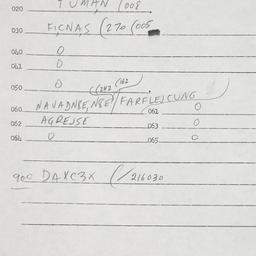 020 TUMAN (008
030 FICNAS (270 (005
040 0
041 0
050 0 ((242 (162
060 NAVADNBE, NBE / FARFLEJCUNG 061 0
062 AGREJSE 063 0
064 0 065 0
900 DAXC3X (/216030